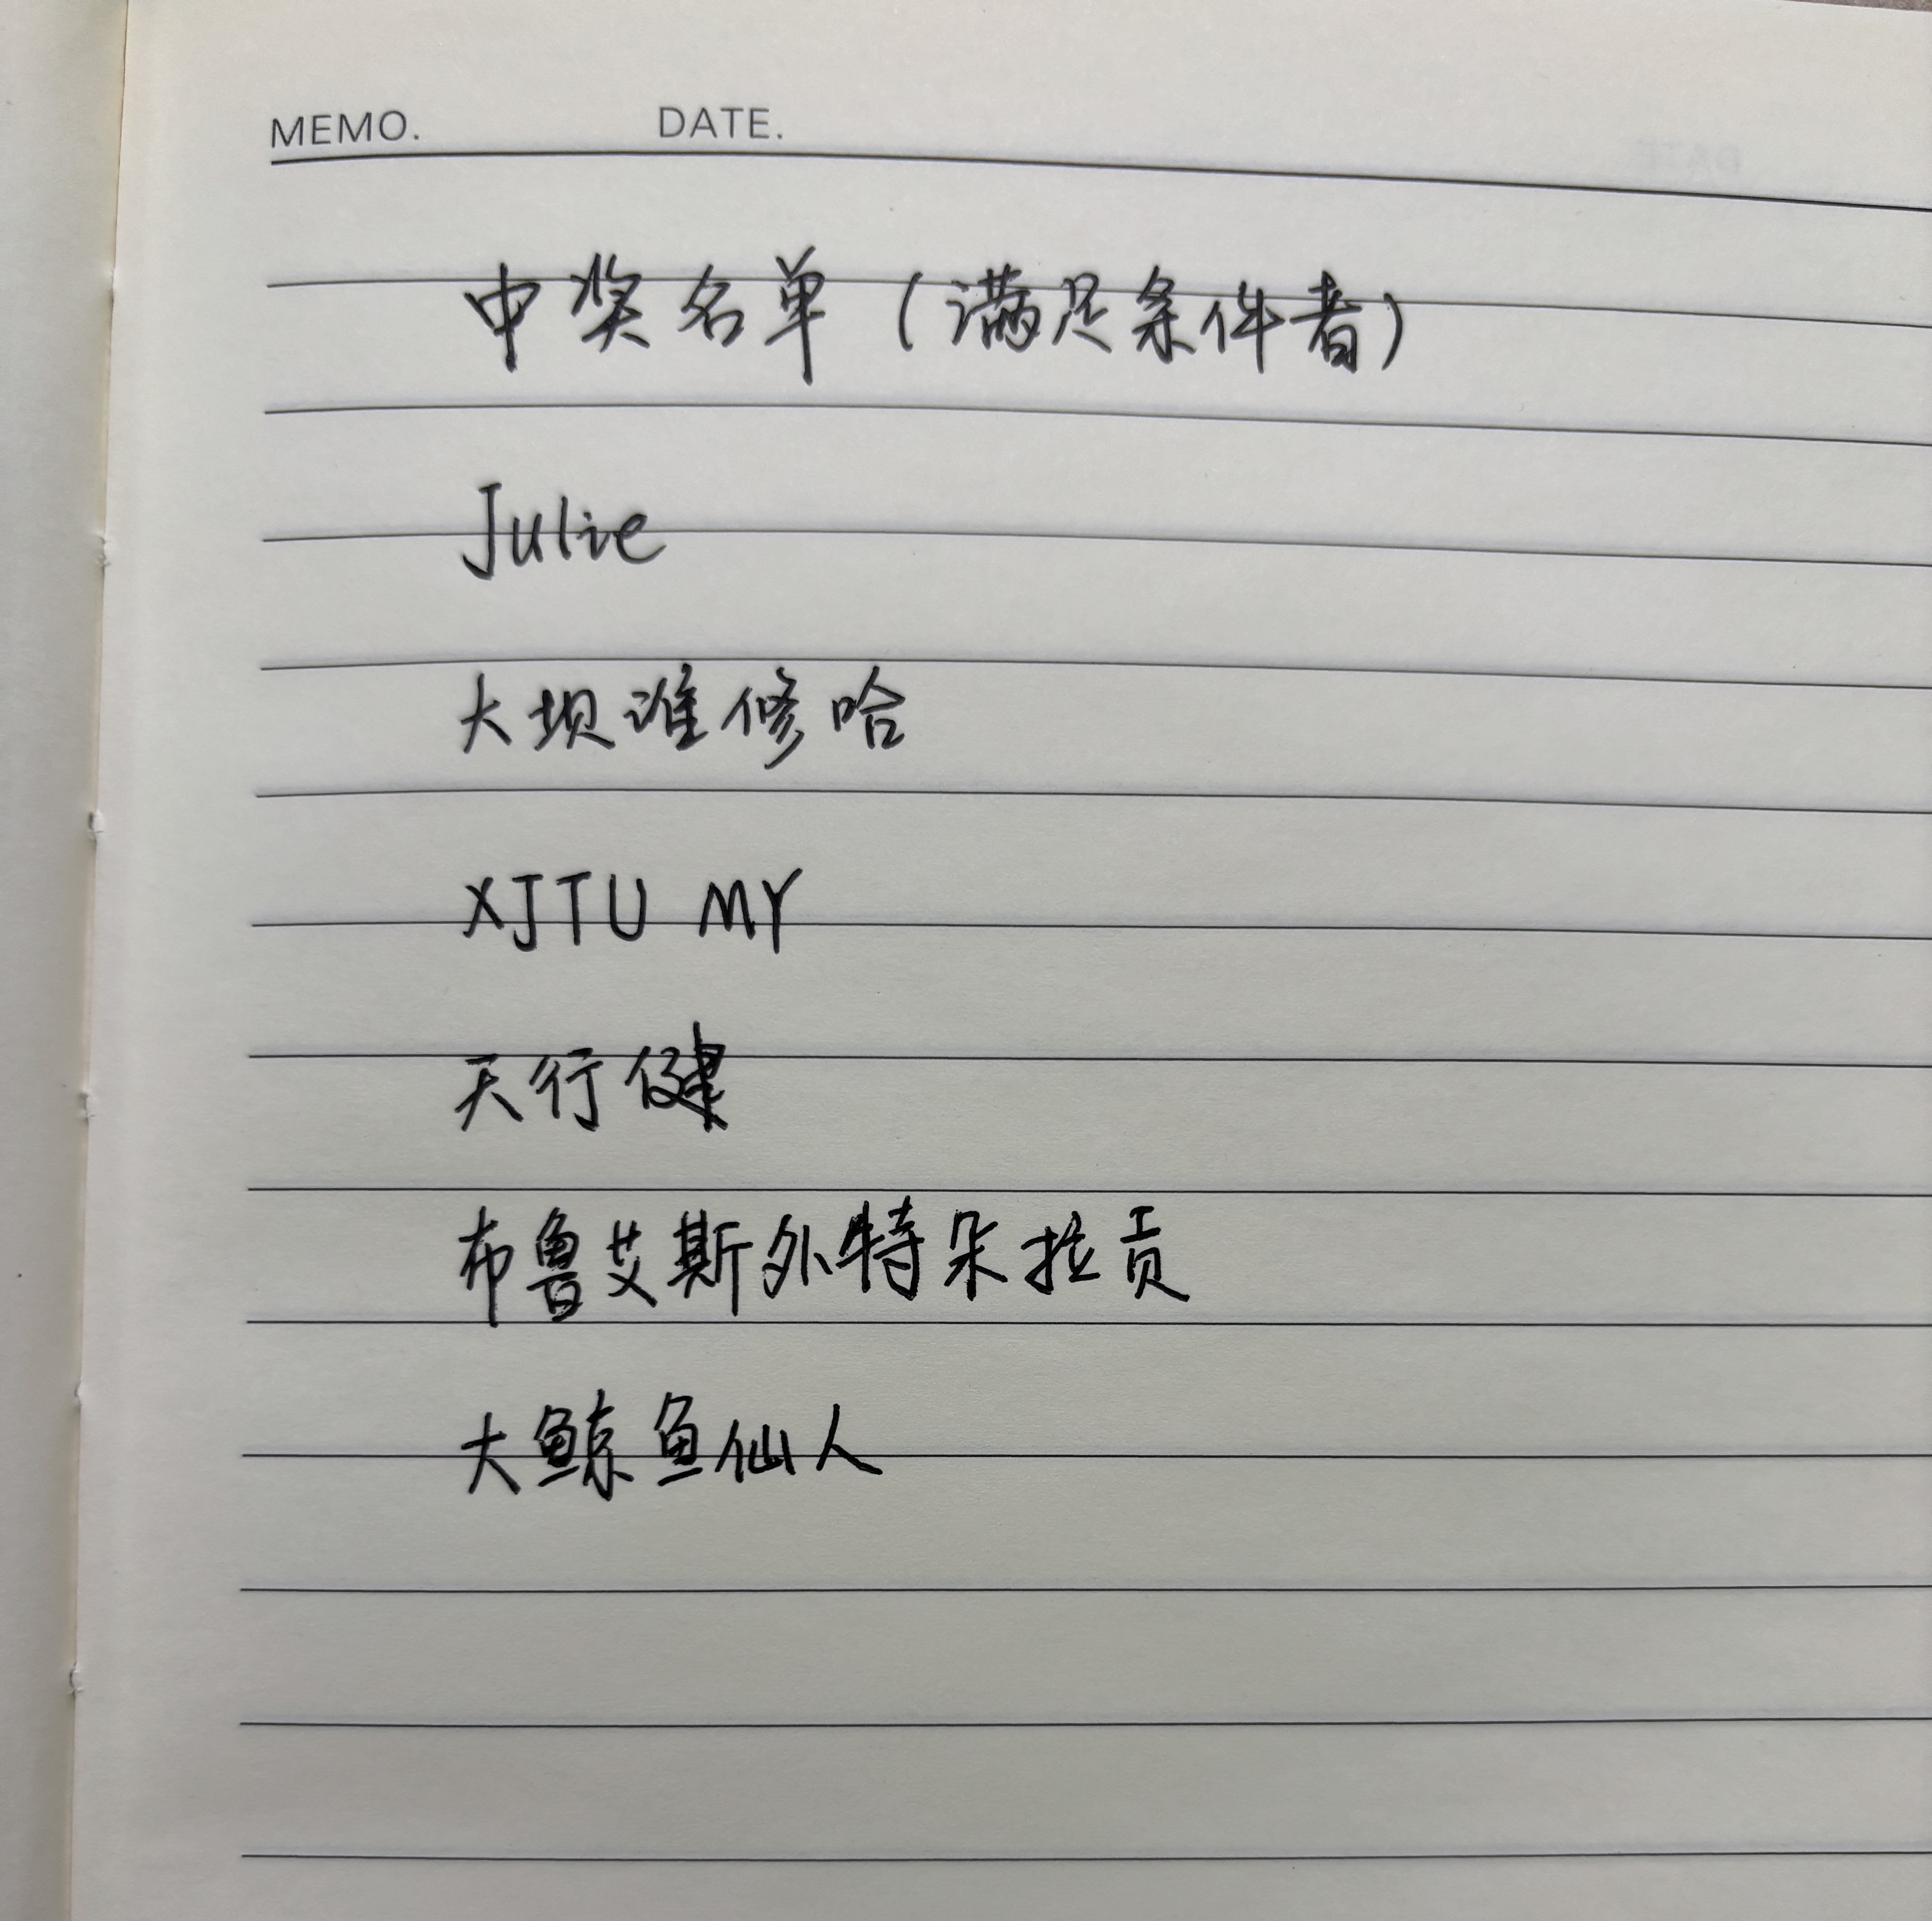 MEMO. DATE.
中奖名单（满足条件者）
Julie
大坝谁修哈
XJTU MY
天行健
布鲁艾斯外特朵拉贡
大鲸鱼仙人